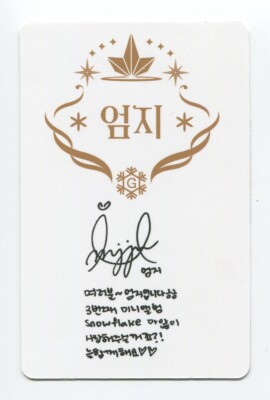 엄지
G
엄지
여러분~ 엄지입니다핳
3번째 미니앨범
snowflake 마않이
사랑해주실꺼죠?!
늘함께해요♡♡